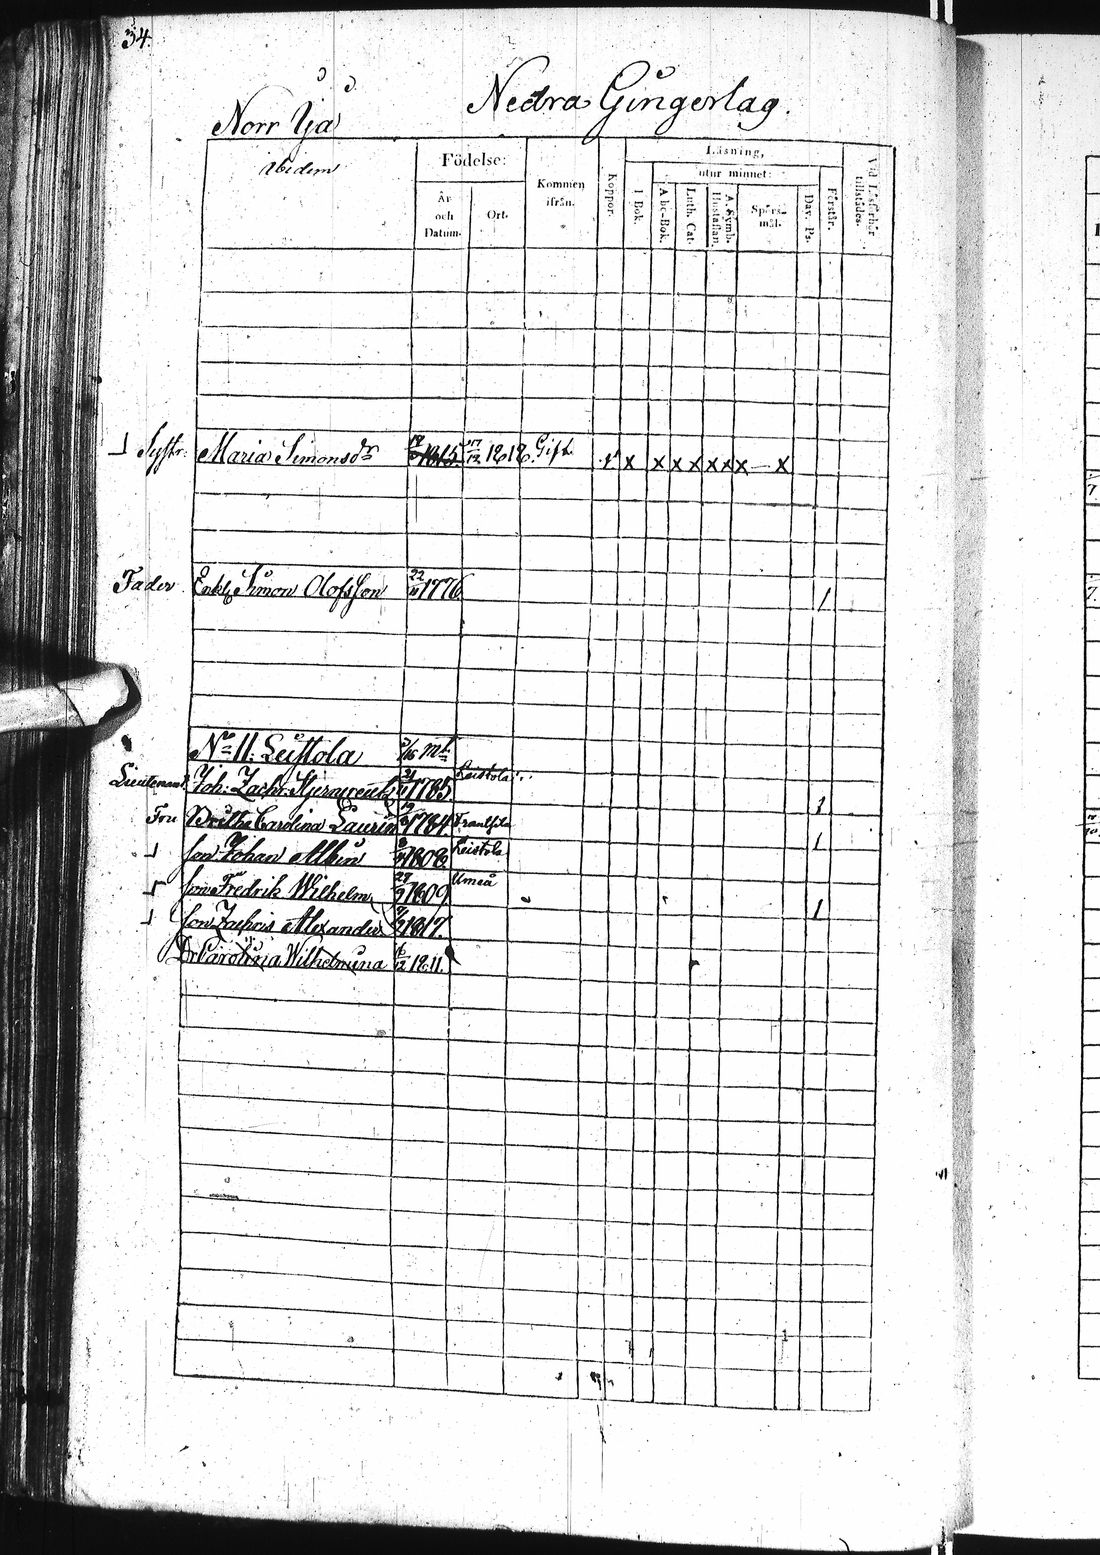 34.
Nedra Gingerlag.
Norr Yja
Ibidem
Födelse:
År och Datum.
Ort.
Kommen ifrån.
Koppor.
Läsning,
I Bok.
utur minnet:
Abc-Bok.
Luth. Cat.
A. Symb. Hustaflan.
Spörsmål.
Dav. Ps.
Förstår.
Vid Läsförhör tillstädes.
Syst: Maria Simonsdr 1815. 17/12 1818. Gift v x x x x x x x — x
Fader Enkl Simon Olofsson 22/11 1776 1
No 11. Leistola 5/16 mt
Lieutenant Joh: Zachr: 21 1785. Leistola 1
Fru Britha Carolina Laurin 19 1784 1
son Johan Albin 1808 Leistola
son Fredrik Wilhelm 29/9 1809 Umeå 1
son Zachris Alexander 1817.
Dr Carolina Wilhelmina 6/12 1811.